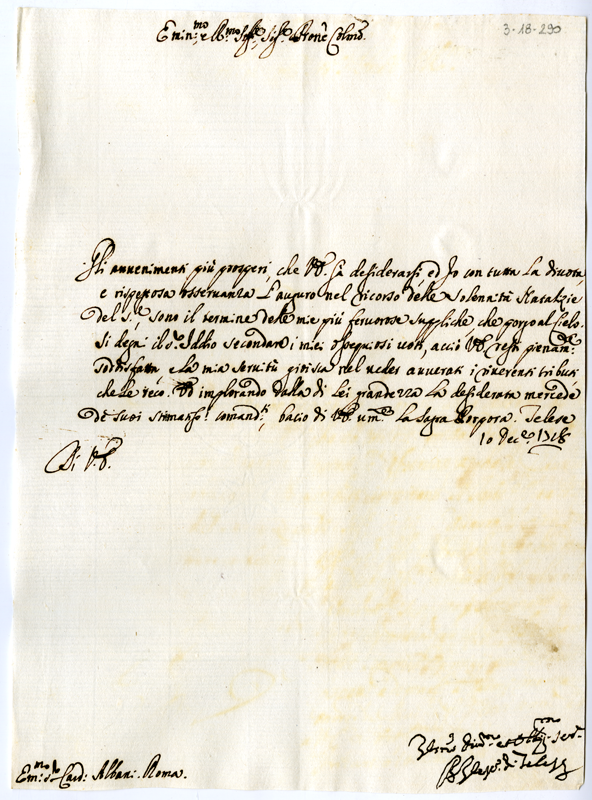 3-18-290
Emin:mo e Rmo Sigre Sigre Prone Colmo
Gli avvenimenti più prosperi, che V.E. sà desiderarsi, ed Io con tutta la divota,
e rispettosa osservanza l'auguro nel ricorso delle Solennità Natalizie
del S.re sono il termine delle mie più fervorose suppliche che porgo al Cielo.
Si degni il Sr Iddio secondare i miei ossequiosi voti, acciò V.E. resti pienamte
soddisfatta, e la mia servitù gioisca nel veder avverati i riverenti tributi
che Le reco. Ed implorando dalla di Lei grandezza la desiderata mercede
de suoi stimatissi comandi, bacio di V.E. umte la Sagra Porpora. Telese
10 Decre 1718
Di V.E.
Divmo et Obligmo Serre
Vescovo di Telese
Em:mo Sr Card: Albani. Roma.